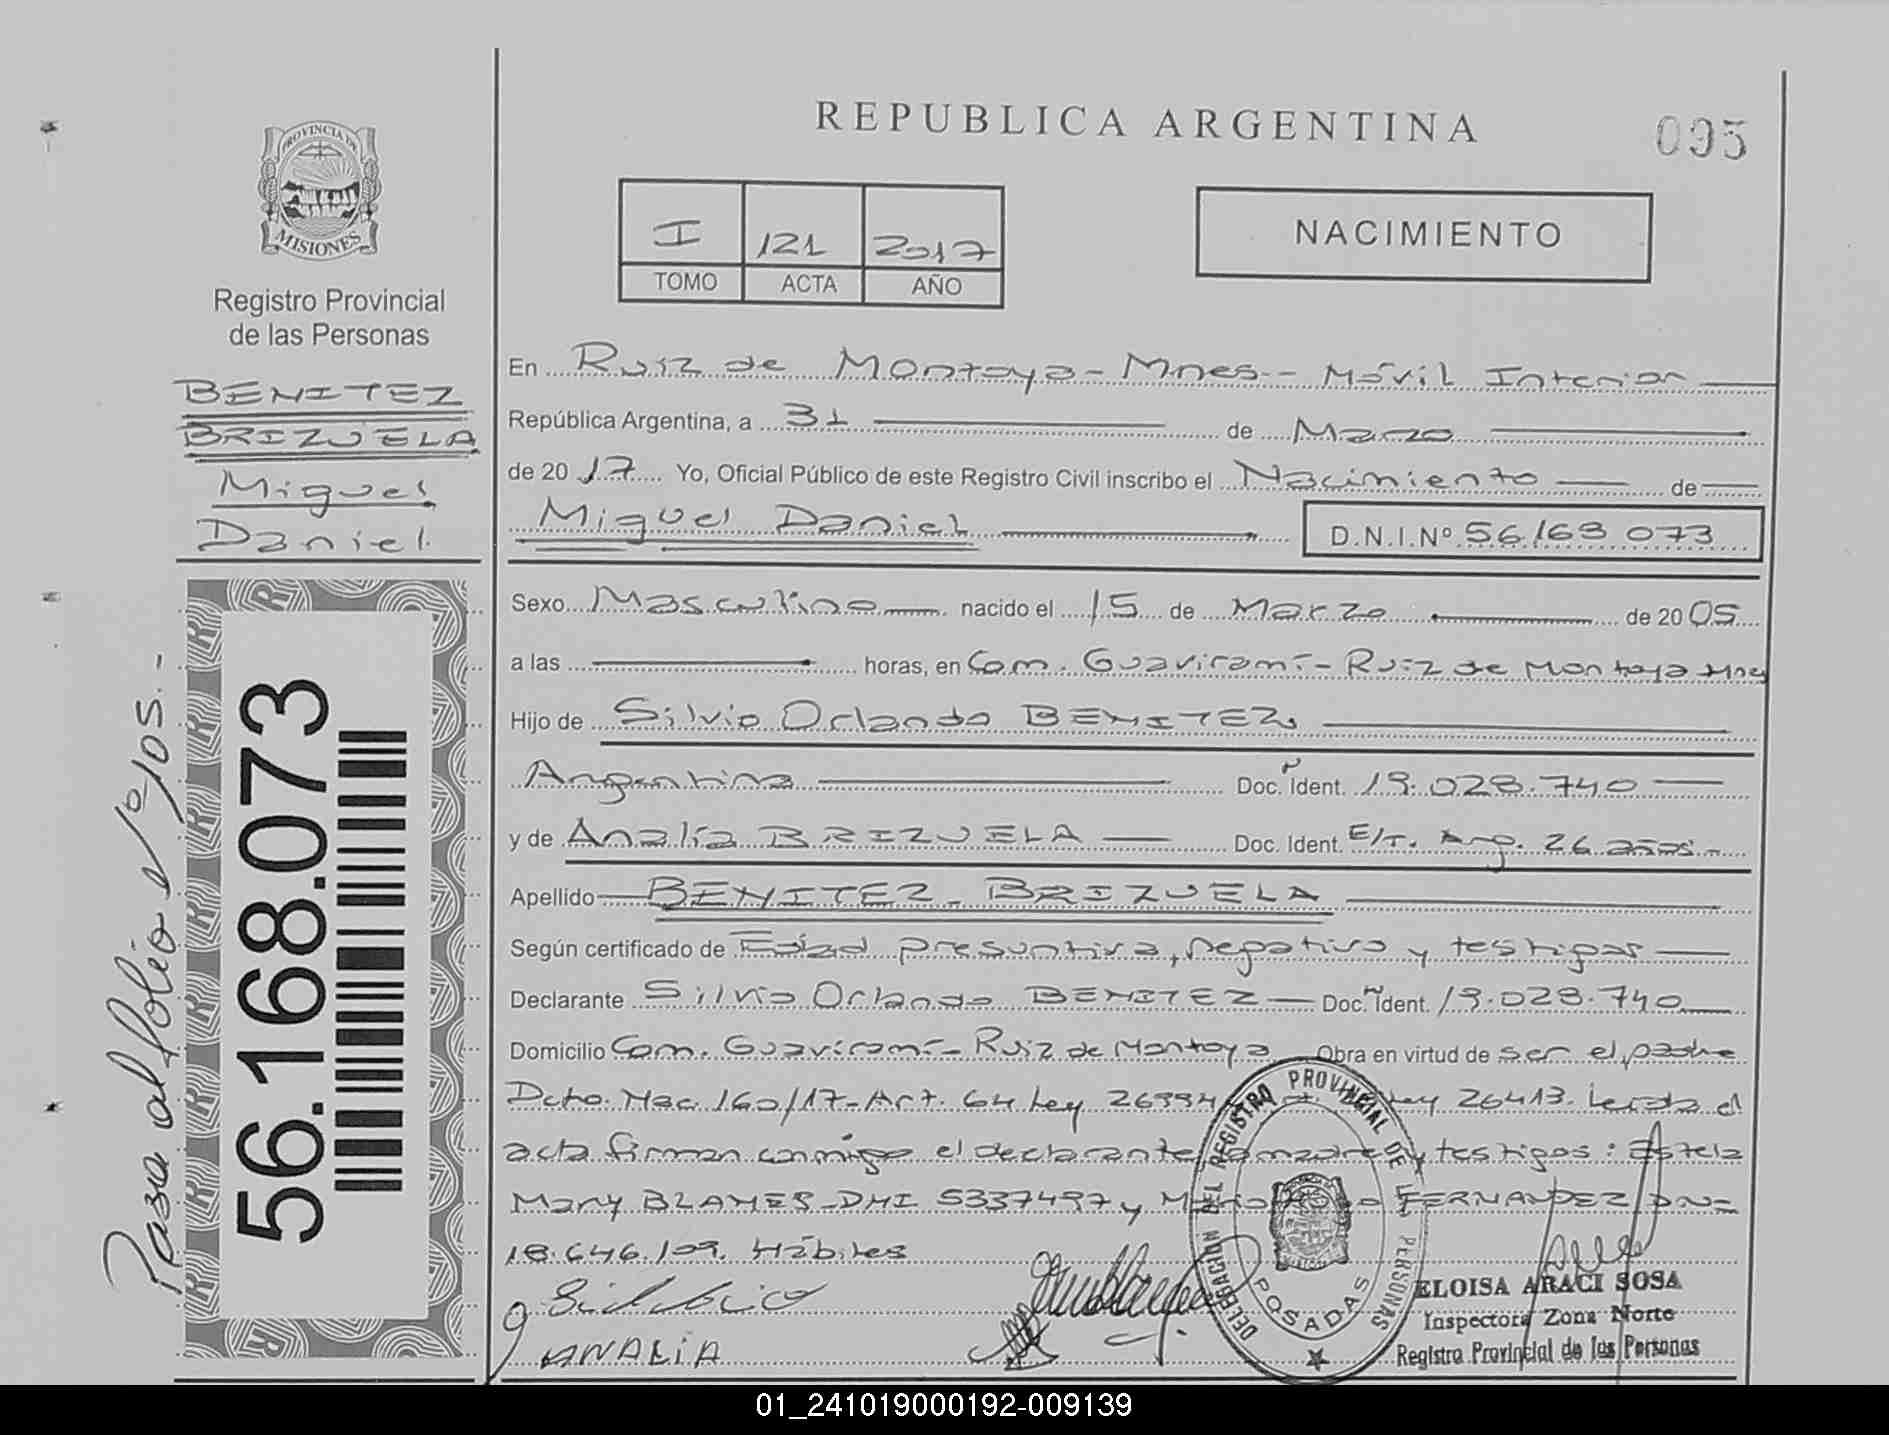 REPUBLICA ARGENTINA
095
PROVINCIA DE
MISIONES
Registro Provincial
de las Personas
BENITEZ
BRIZUELA
Miguel
Daniel
I 121 2017
TOMO ACTA AÑO
NACIMIENTO
En Ruiz de Montoya - Mnes - Móvil Interior
República Argentina, a 31 de Marzo
de 20 17 Yo, Oficial Público de este Registro Civil inscribo el Nacimiento de
Miguel Daniel D.N.I.Nº 56168 073
Sexo Masculino nacido el 15 de Marzo de 20 05
a las horas, en Com. Guaviramí - Ruiz de Montoya Mnes
Hijo de Silvio Orlando BENITEZ
Argentina Doc. Ident. 19.028.740
y de Analía BRIZUELA Doc. Ident. E/T. Arg. 26 años.-
Apellido BENITEZ - BRIZUELA
Según certificado de Edad presuntiva, negativo y testigos
Declarante Silvio Orlando BENITEZ Doc. Ident. 19.028.740
Domicilio Com. Guaviramí - Ruiz de Montoya Obra en virtud de ser el padre
Dcto. Nac. 160/17 - Art. 64 Ley 26994 Ley 26413. Leída el
acta firman conmigo el declarante, la madre y testigos: Estela
Mary BLANES - DNI 5337497 y FERNANDEZ DNI
18.646.109. Hábiles
Silbio
ANALIA
DELEGACION DEL REGISTRO PROVINCIAL DE LAS PERSONAS
POSADAS
ELOISA ARACI SOSA
Inspectora Zona Norte
Registro Provincial de las Personas
56.168.073
Pasa al folio Nº 105.-
01_241019000192-009139